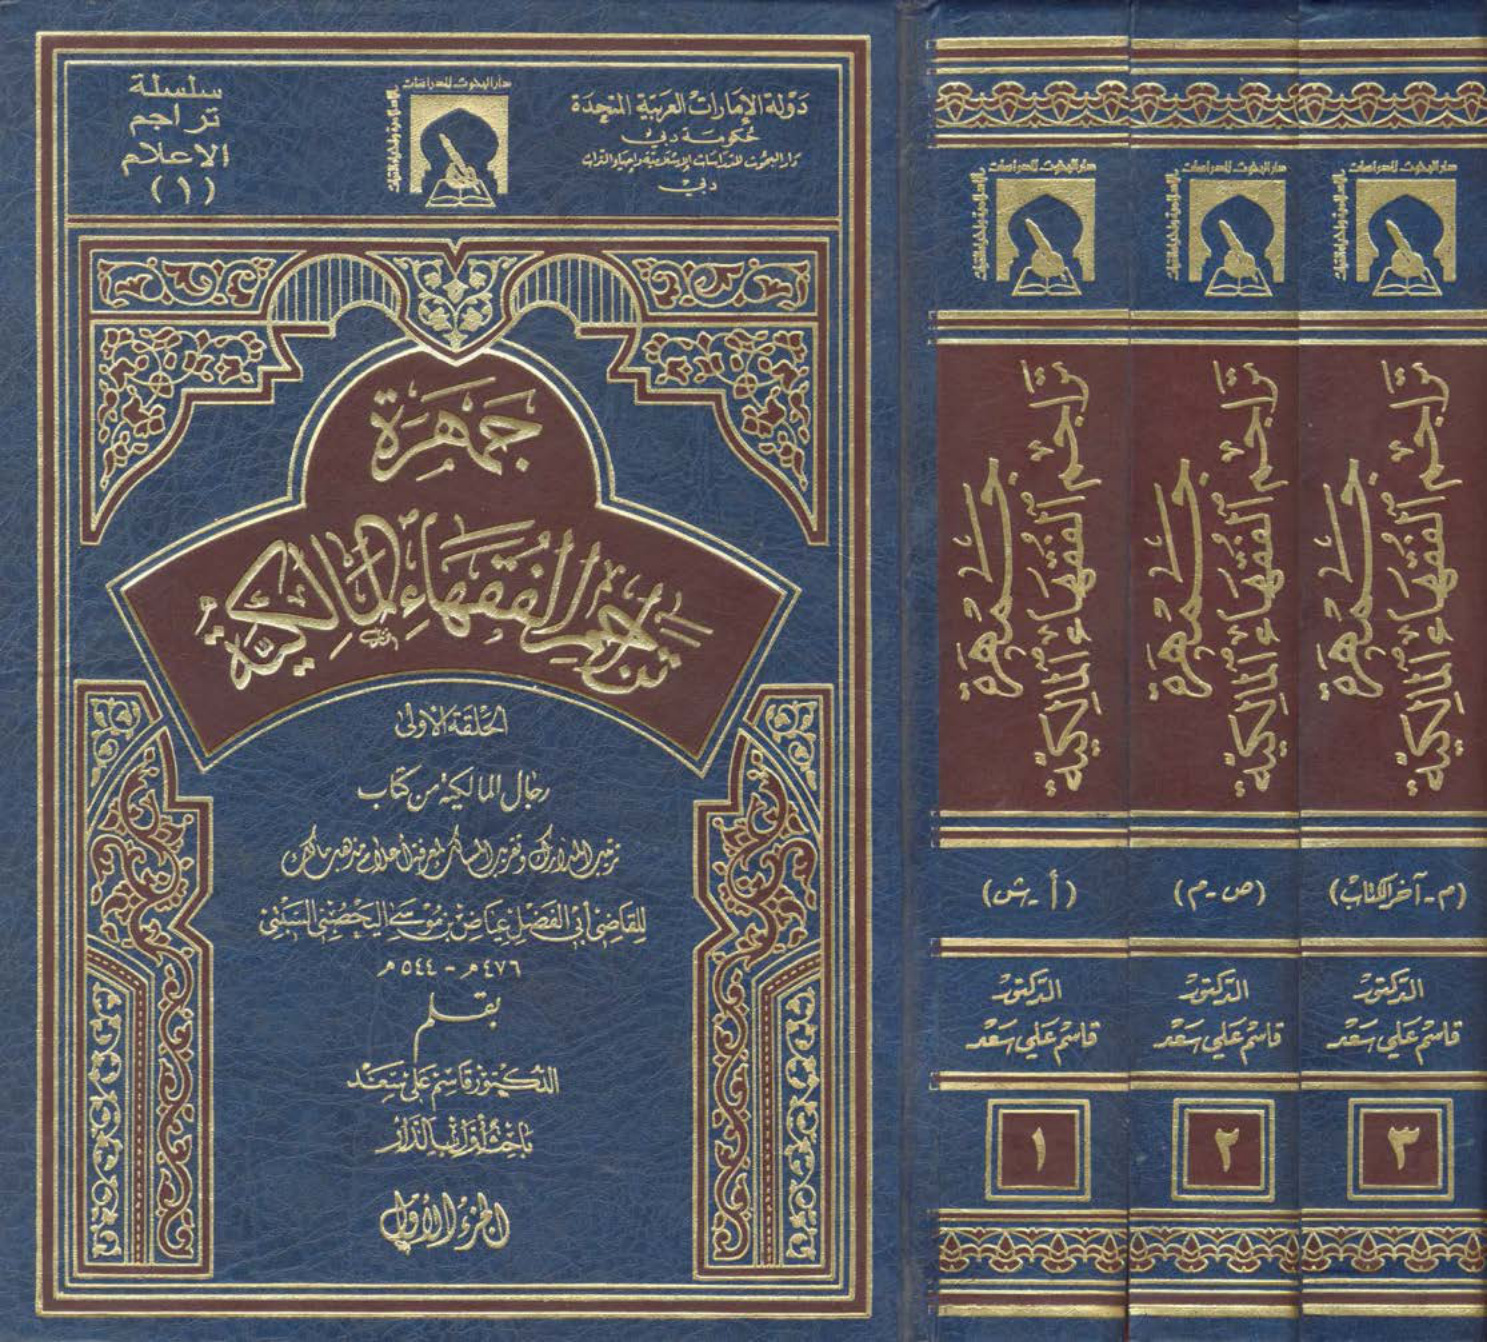 دولة الإمارات العربية المتحدة
حكومة دبي
دار البحوث للدراسات الإسلامية وإحياء التراث
دبي
دار البحوث للدراسات
الإسلامية وإحياء التراث
سلسلة
تراجم
الاعلام
(١)
جَمْهَرَة
تراجم الفُقَهَاء المالِكيَّة
الحلقة الأولى
رجال المالكية من كتاب
ترتيب المدارك وتقريب المسالك لمعرفة أعلام مذهب مالك
للقاضي أبي الفضل عياض بن موسى اليحصبي السبتي
٤٧٦ هـ - ٥٤٤ هـ
بقلم
الدكتور قاسم علي سعد
باحث أول بالدار
الجزء الأول
دار البحوث للدراسات
الإسلامية وإحياء التراث
جمهرة
تراجم الفقهاء المالكية
(أ - ش)
الدكتور
قاسم علي سعد
١
دار البحوث للدراسات
الإسلامية وإحياء التراث
جمهرة
تراجم الفقهاء المالكية
(ص - م)
الدكتور
قاسم علي سعد
٢
دار البحوث للدراسات
الإسلامية وإحياء التراث
جمهرة
تراجم الفقهاء المالكية
(م - آخر الكتاب)
الدكتور
قاسم علي سعد
٣